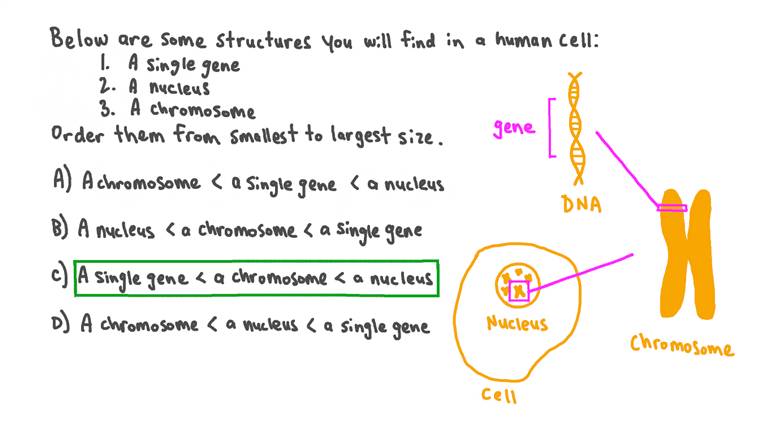 Below are some structures you will find in a human cell:
1. A single gene
2. A nucleus
3. A chromosome
Order them from smallest to largest size.
A) A chromosome < a single gene < a nucleus
B) A nucleus < a chromosome < a single gene
C) A single gene < a chromosome < a nucleus
D) A chromosome < a nucleus < a single gene
gene
DNA
Nucleus
Chromosome
Cell